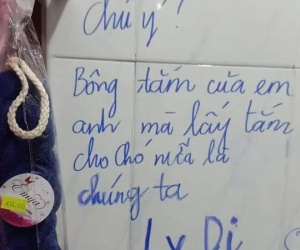 chú ý!
Bông tắm của em
anh mà lấy tắm
cho chó nữa là
chúng ta
Ly Dị